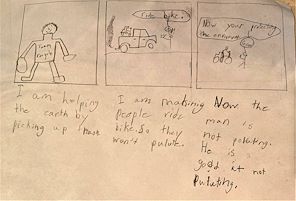 ride bike.
Now your protecting
the
I am helping
the earth by
picking up trash
I am making
people ride
bike. So they
won't pulute.
Now the
man is
not polating.
He is a
good at not
Pulating.